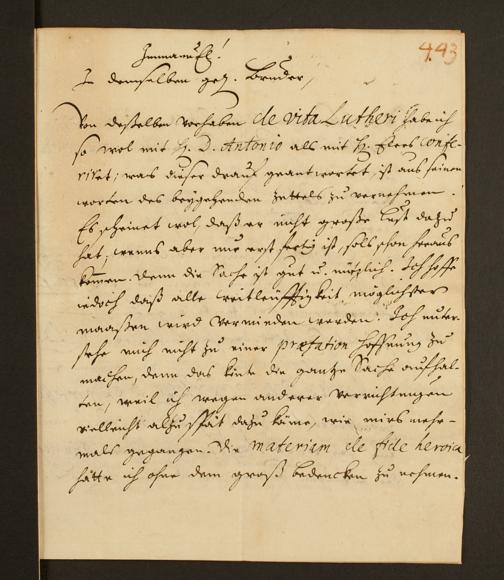 443
Immanuel!
In demselben gel. Bruder,
Von deßelben vorhaben de vita Lutheri habe ich
so wol mit H. D. Antonio als mit H. Elers confe-
riret; was dieser drauf geantwortet, ist aus seinen
worten des beygehenden zettels zu vernehmen.
Es scheinet wol, daß er nicht große lust dazu
hat, wenns aber nur erst fertig ist, solls schon heraus
kommen. Denn die Sache ist gut u. nützlich. Ich hoffe
iedoch daß alle weitleuffigkeit möglichster
maaßen wird vermieden werden. Ich unter-
stehe mich nicht zu einer præfation hoffnung zu
machen, denn das könte die gantze Sache aufhal-
ten, weil ich wegen anderer verrichtungen
vielleicht alzuspät dazu käme, wie mirs mehr-
mals gegangen. Die materiam de fide heroica
hätte ich ohne dem groß bedencken zu nehmen.